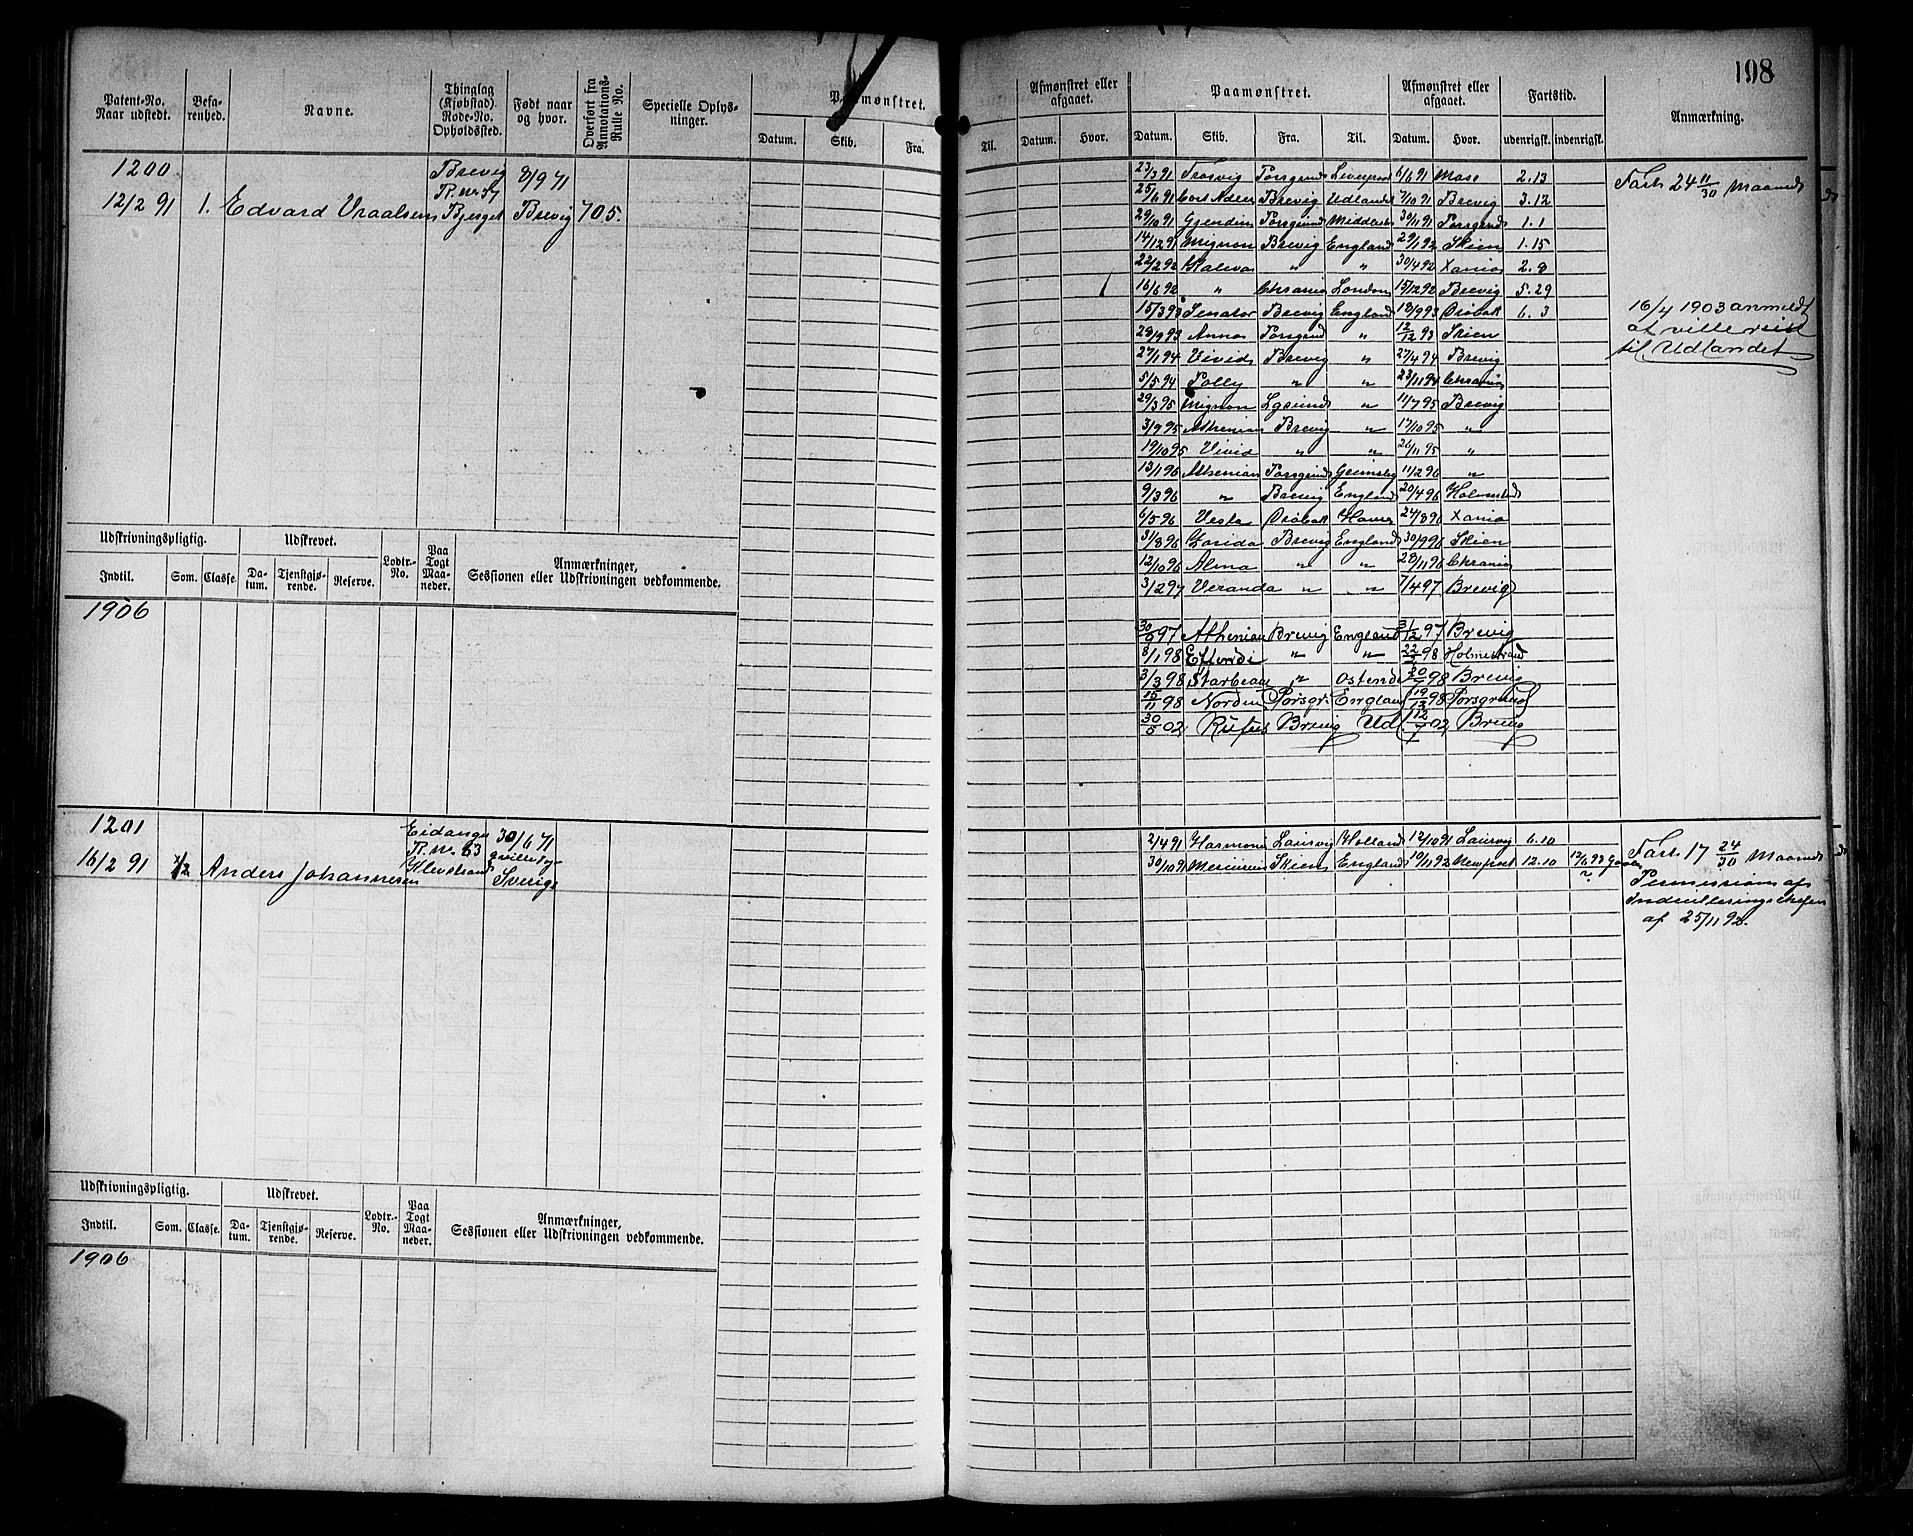 198
Patent-No. Naar udstedt.
Befarenhed.
Navne.
Thinglag (Kjøbstad). Rode-No. Opholdssted.
Født naar og hvor.
Overført fra Annotations-Rulle No.
Specielle Oplysninger.
Paamønstret.
Datum. Skib. Fra. Til.
Afmønstret eller afgaaet.
Datum. Hvor.
Paamønstret.
Datum. Skib. Fra. Til.
Afmønstret eller afgaaet.
Datum. Hvor.
Fartstid.
udenrigsk. indenrigsk.
Anmærkning.
1200
12/2 91 1. Edvard Vraalsen
Brevig
R No 37
Bjerget
8/9 71
Brevig
705.
23/3 91 Frosvig Porsgrund Liverpool 6/6 91 Moss 2.13
25/6 91 Cort Adeler Brevig Udlandet 7/10 91 Brevig 3.12
29/10 91 Gjendin Porsgrund 30/11 91 Porsgrund 1.1
14/12 91 Mignon Brevig England 29/1 92 Skien 1.15
22/2 92 Kaleva " " 30/4 92 Xania 2.8
16/6 92 " Chrania London 15/12 92 Brevig 5.29
15/3 93 Senator Brevig England 18/9 93 Drøbak 6.3
28/9 93 Anna Porsgrund " 12/12 93 Skien
27/1 94 Vivid Brevig " 27/4 94 Brevig
5/5 94 Polly " " 23/11 94 Chrania
29/3 95 Mignon Lgsund " 11/7 95 Brevig
3/9 95 Athenian Brevig " 17/10 95 "
19/10 95 Vivid " " 26/11 95 "
13/1 96 Athenian Porsgrund Grimsby 11/2 96 "
9/3 96 " Brevig England 20/4 96 Holmestrand
6/5 96 Vesta Drøbak Havre 24/8 96 Xania
31/8 96 Zarida Brevig England 30/9 96 Skien
12/10 96 Alma " " 28/11 96 Chrania
3/2 97 Veranda " " 7/4 97 Brevig
30/9 97 Athenian Brevig England 31/12 97 Brevig
8/1 98 Effendi " " 22/2 98 Holmestrand
3/3 98 Starbeam " Ostende 20/ 98 Brevig
15/11 98 Norden Porsgr. England 19/12 98 Porsgrund
30/5 02 Rufus Brevig Udl 12/7 02 Brevig
Fart 24 11/30 Maaned
16/4 1903 anmeldt
at ville reise
til Udlandet
Udskrivningspligtig. Udskrevet. Lodtr.-No. Paa Togt Maaneder. Anmærkninger, Sessionen eller Udskrivningen vedkommende.
Indtil. Som. Classe. Datum. Tjenstgjørende. Reserve.
1906
1201
16/2 91 1/2 Anders Johannesen
Eidanger
R. No 63
Klevstrand
30/6 71
Sverige
2/4 91 Harmoni Laurvig Holland 12/10 91 Laurvig 6.10
30/10 91 England 10/11 92 Newport 12.10
Fart 17 24/30 Maaned
Permission af
Indrulleringschefen
af 25/11 92.
Udskrivningspligtig. Udskrevet. Lodtr.-No. Paa Togt Maaneder. Anmærkninger, Sessionen eller Udskrivningen vedkommende.
Indtil. Som. Classe. Datum. Tjenstgjørende. Reserve.
1906